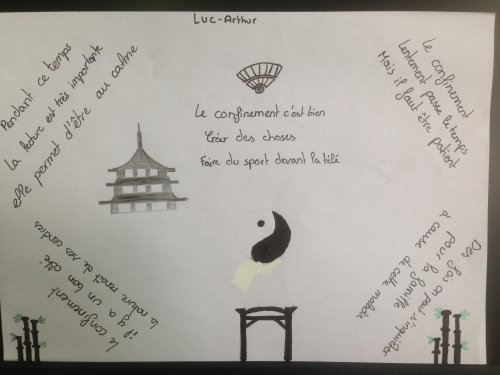 LUC-Arthur
Pendant ce temps
La lecture est très importante
elle permet d'être au calme
Le confinement c'est bien
Créer des choses
Faire du sport devant la télé
Le confinement
Lentement passe le temps
Mais il faut être patient
Le confinement
il y a un bon côté
la nature renaît de ses cendres
Des fois on peut s'inquiéter
pour la famille
à cause de cette maladie